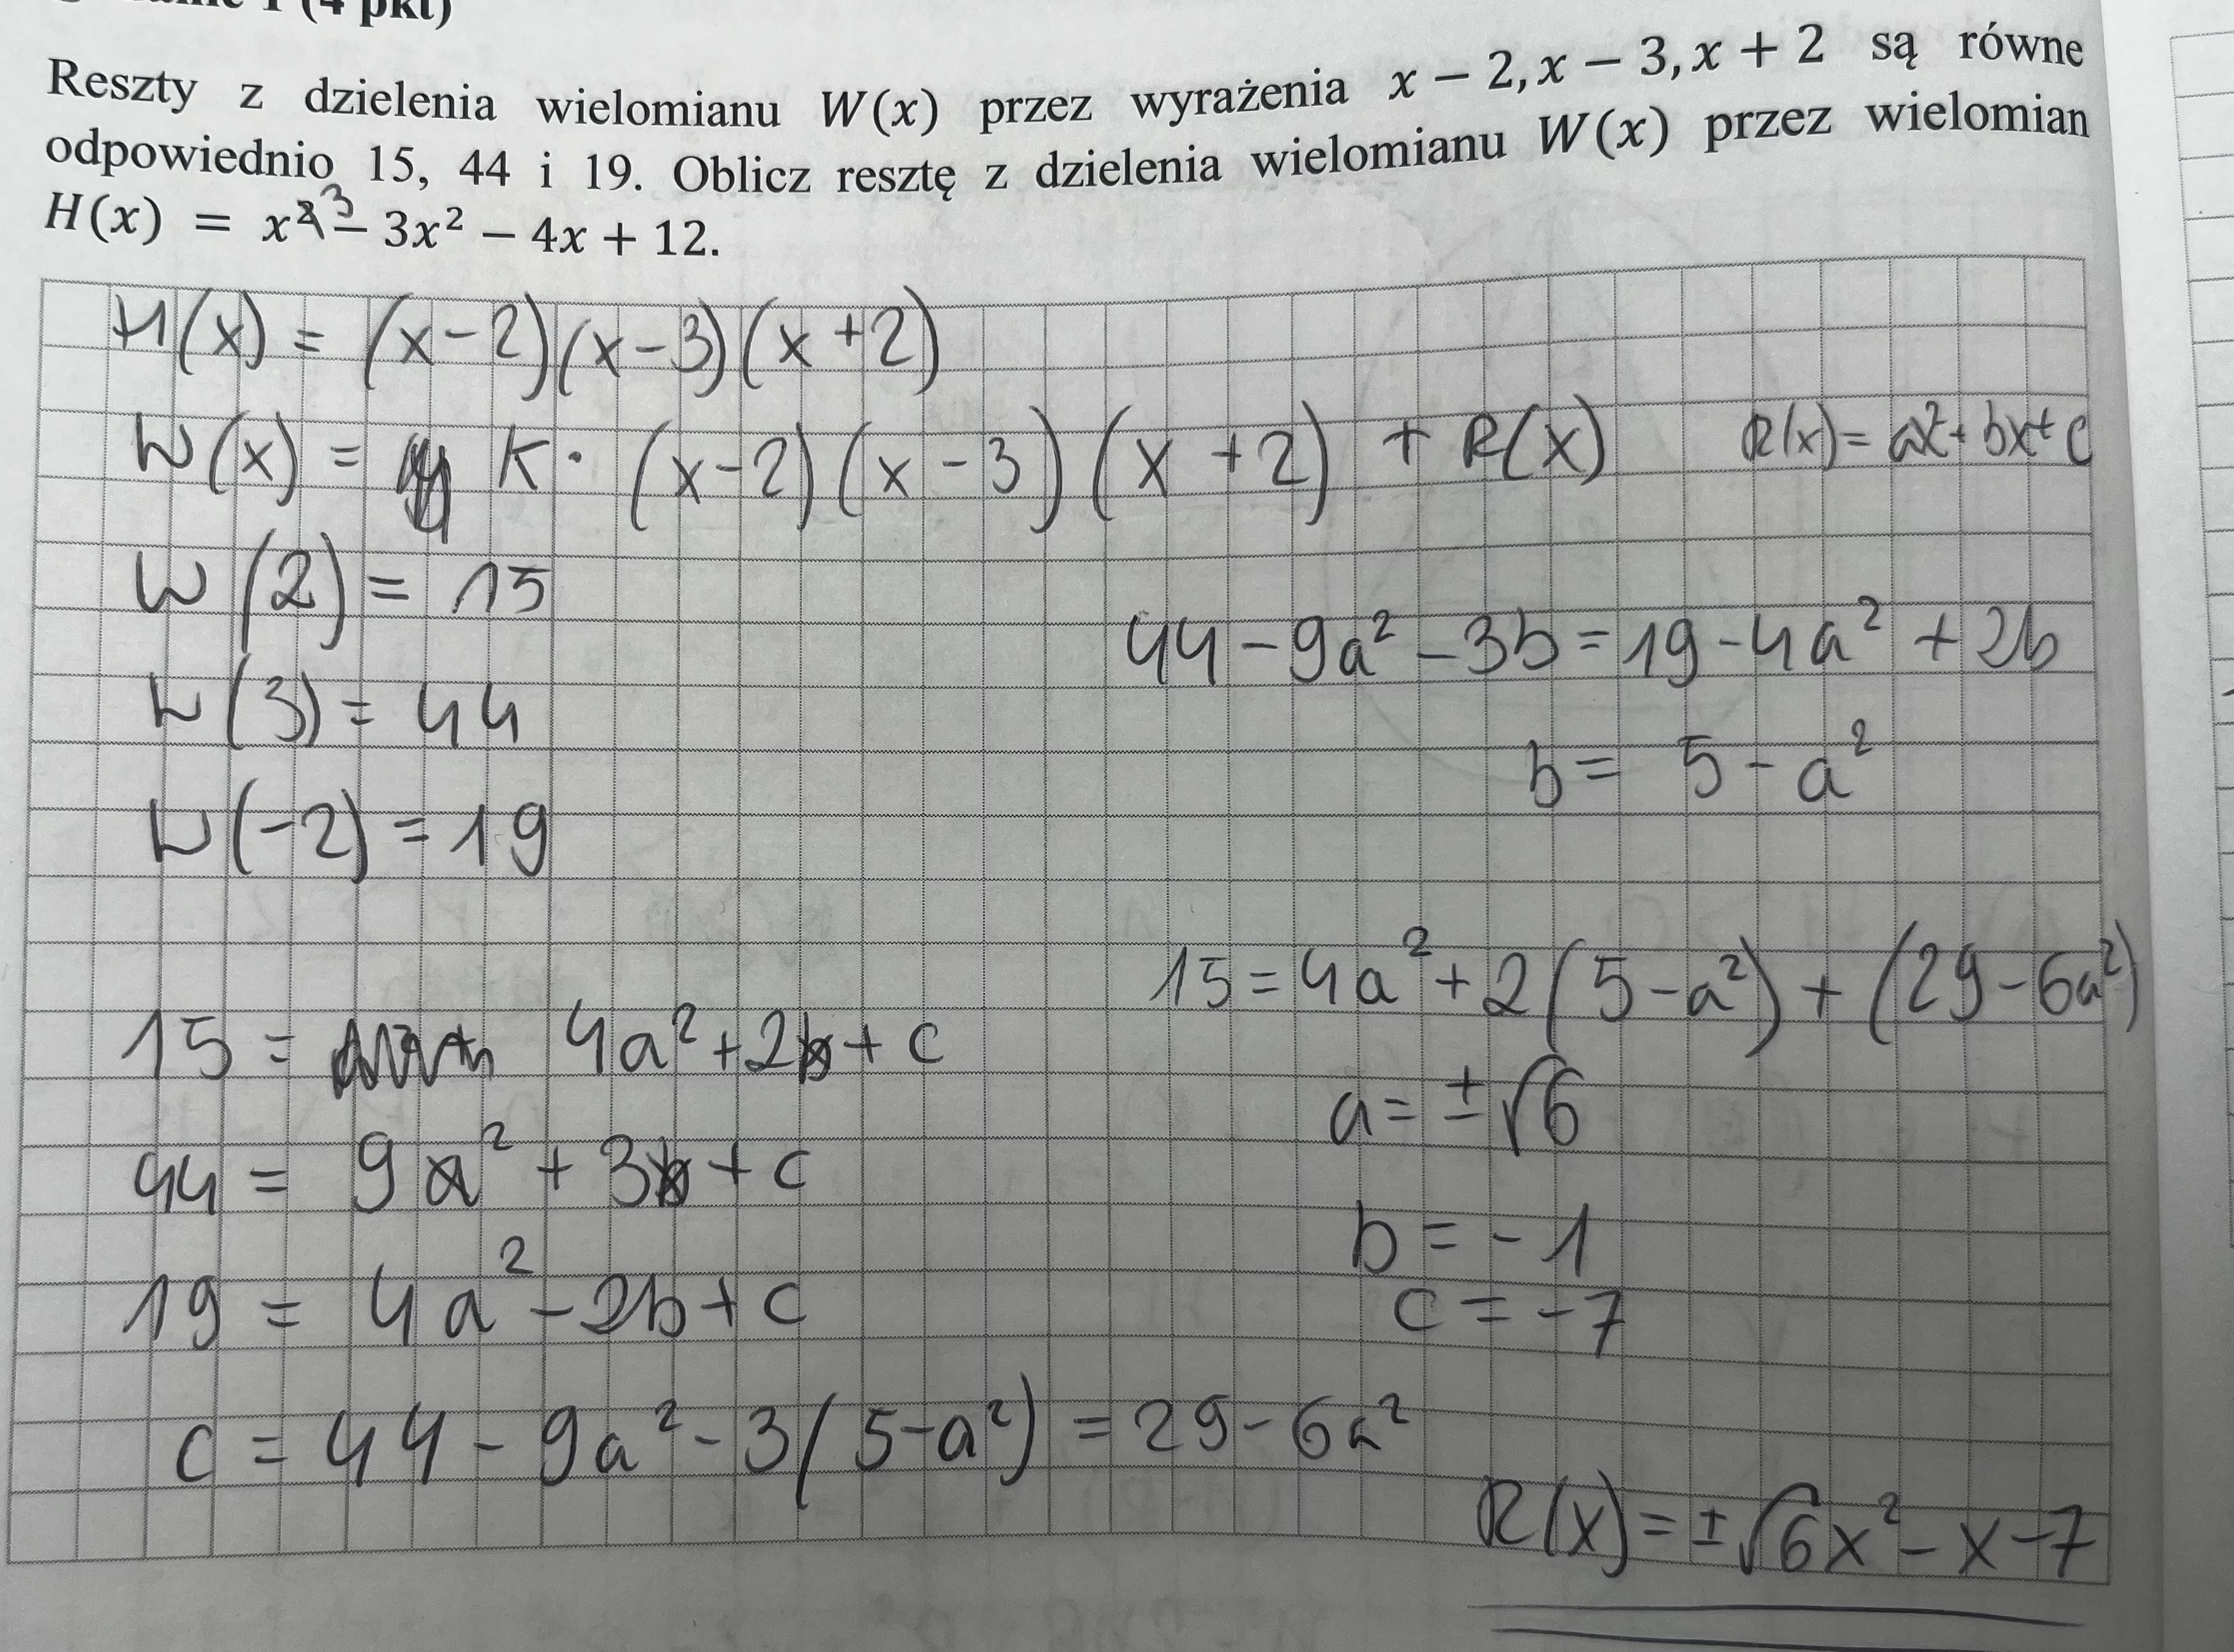 1 (4 pkt)
Reszty z dzielenia wielomianu W(x) przez wyrażenia x − 2, x − 3, x + 2 są równe
odpowiednio 15, 44 i 19. Oblicz resztę z dzielenia wielomianu W(x) przez wielomian
H(x) = x³ − 3x² − 4x + 12.
H(x) = (x-2)(x-3)(x+2)
W(x) = K · (x-2)(x-3)(x+2) + R(x) R(x) = ax² + bx + c
W(2) = 15
W(3) = 44
W(-2) = 19
15 = 4a² + 2b + c
44 = 9a² + 3b + c
19 = 4a² - 2b + c
c = 44 - 9a² - 3(5-a²) = 29 - 6a²
44 - 9a² - 3b = 19 - 4a² + 2b
b = 5 - a²
15 = 4a² + 2(5-a²) + (29-6a²)
a = ±√6
b = -1
c = -7
R(x) = ±√6x² - x - 7